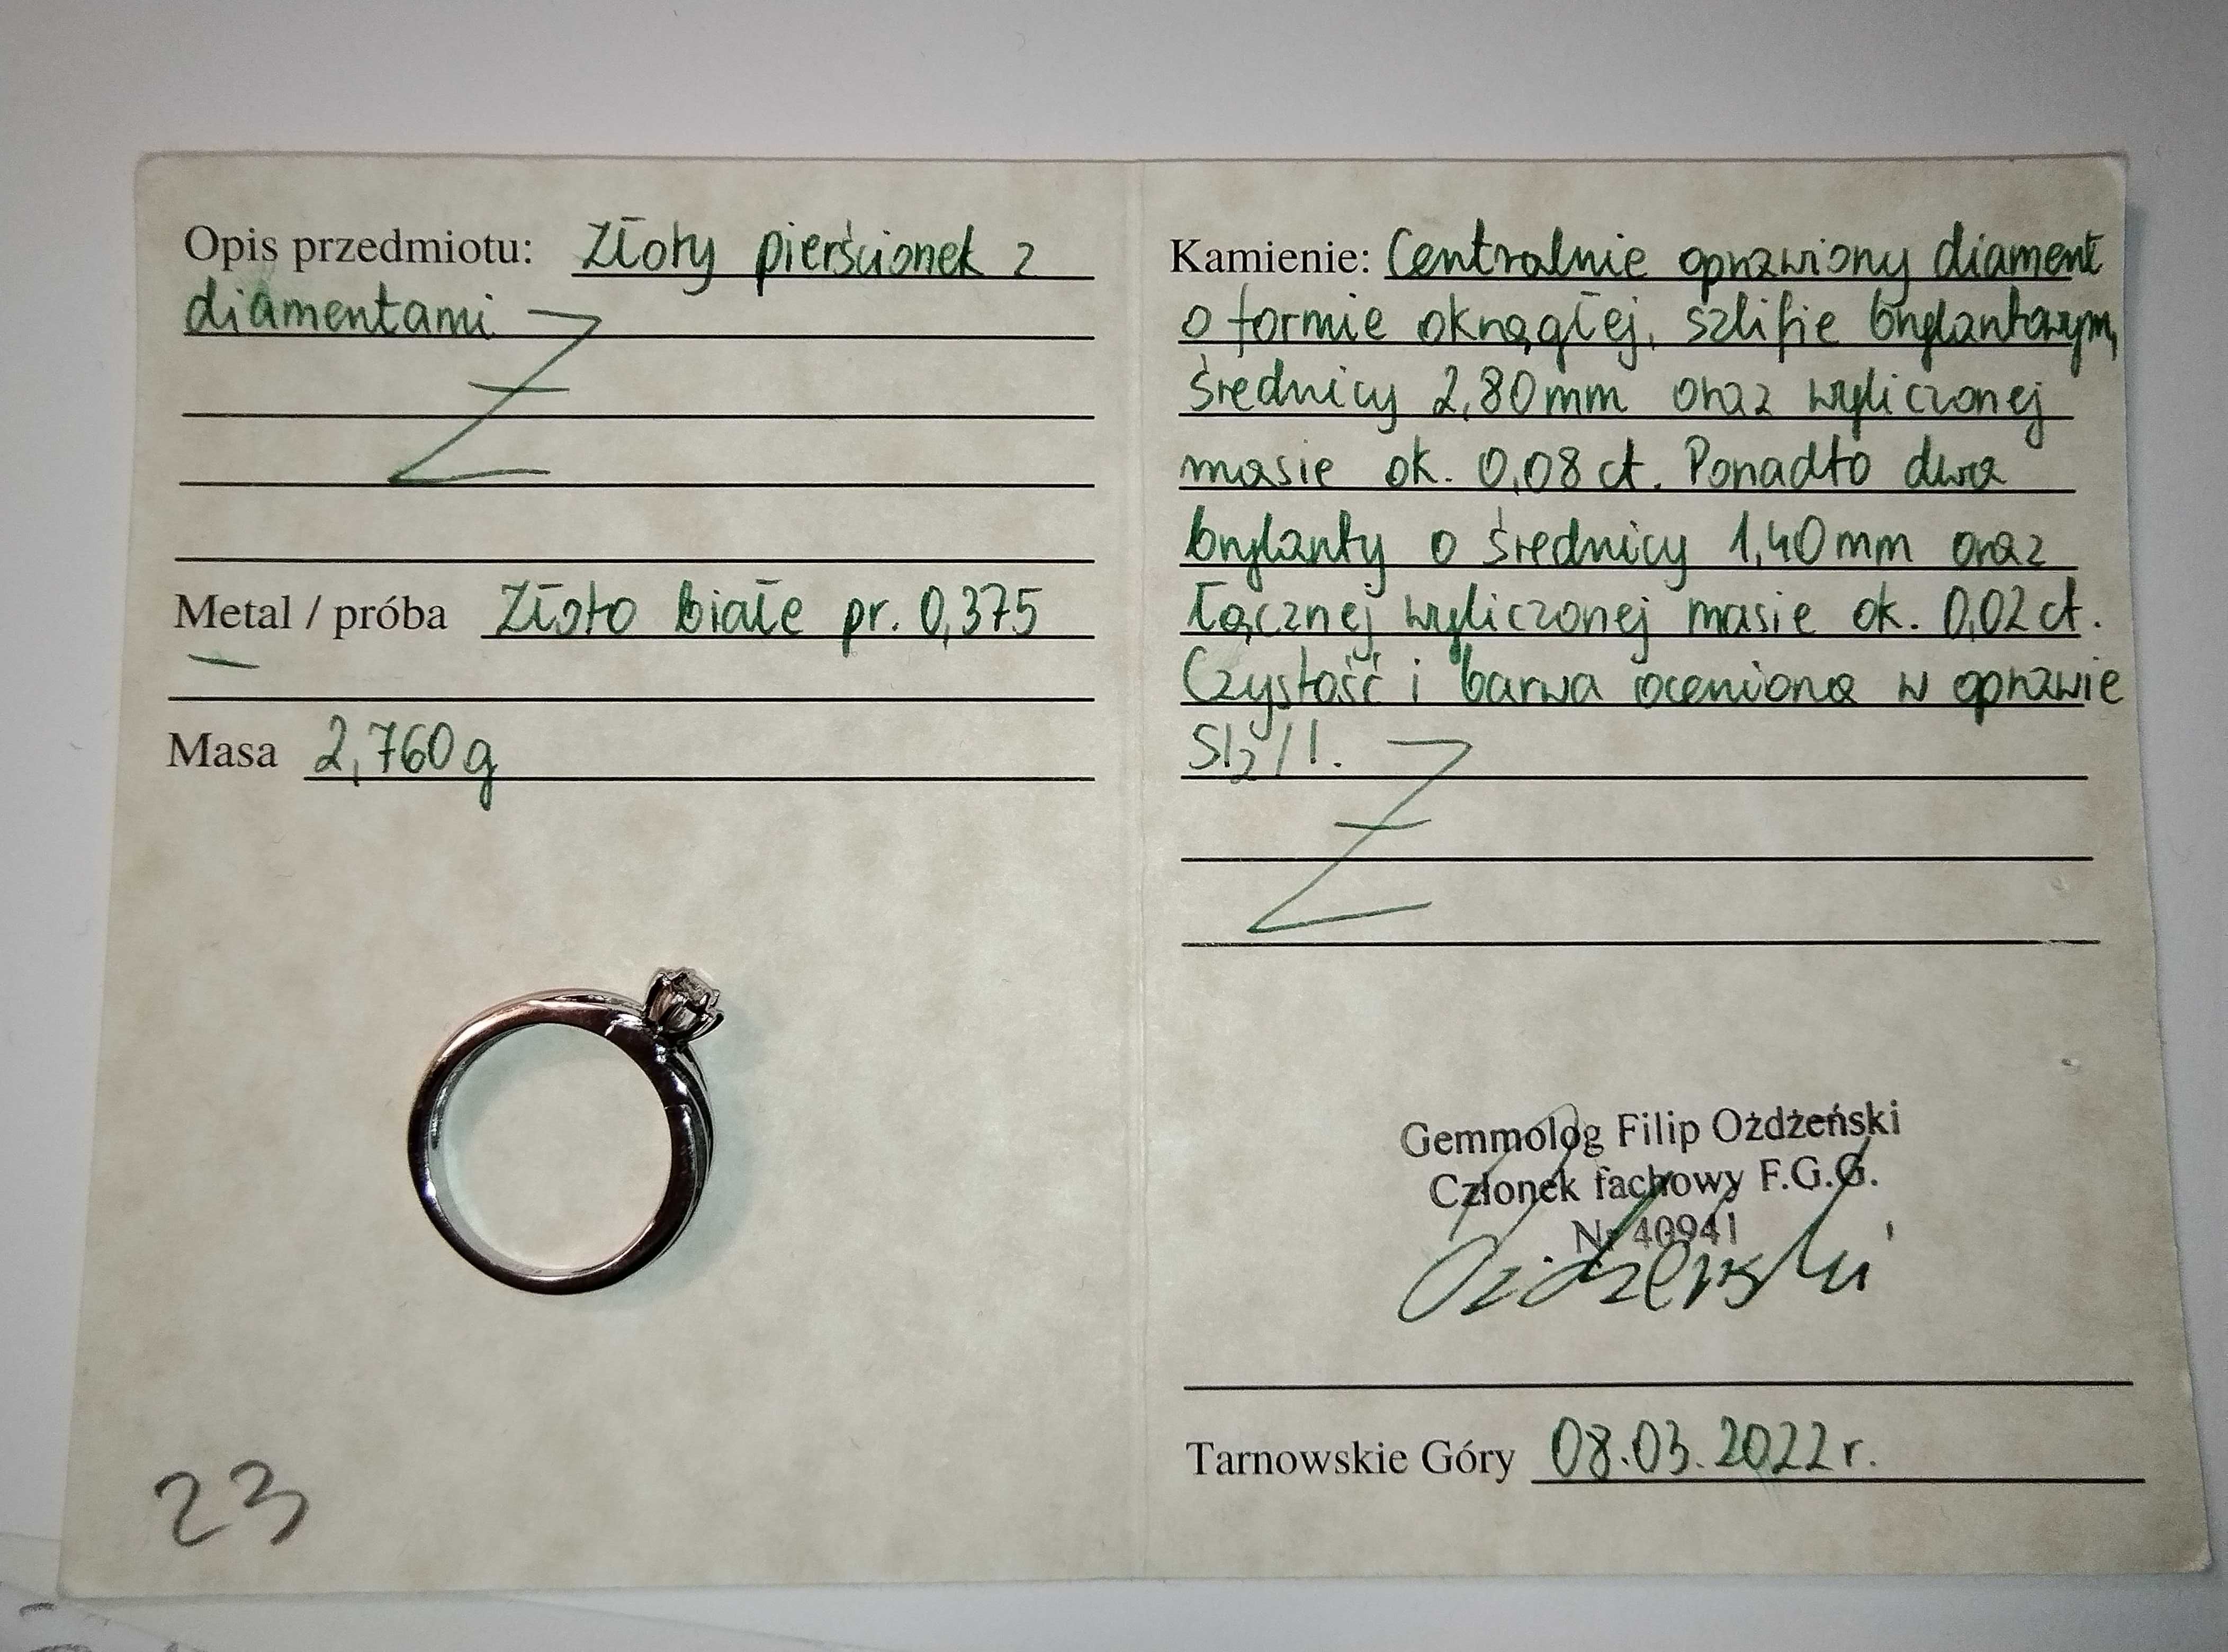 Opis przedmiotu: Złoty pierścionek z
diamentami
Metal / próba Złoto białe pr. 0,375
Masa 2,760 g
23
Kamienie: Centralnie oprawiony diament
o formie okrągłej, szlifie brylantowym,
średnicy 2,80 mm oraz wyliczonej
masie ok. 0,08 ct. Ponadto dwa
brylanty o średnicy 1,40 mm oraz
łącznej wyliczonej masie ok. 0,02 ct.
Czystość i barwa oceniona w oprawie
SI₂/I.
Gemmolog Filip Ożdżeński
Członek fachowy F.G.G.
Nr 40941
Ożdżeński
Tarnowskie Góry 08.03.2022 r.